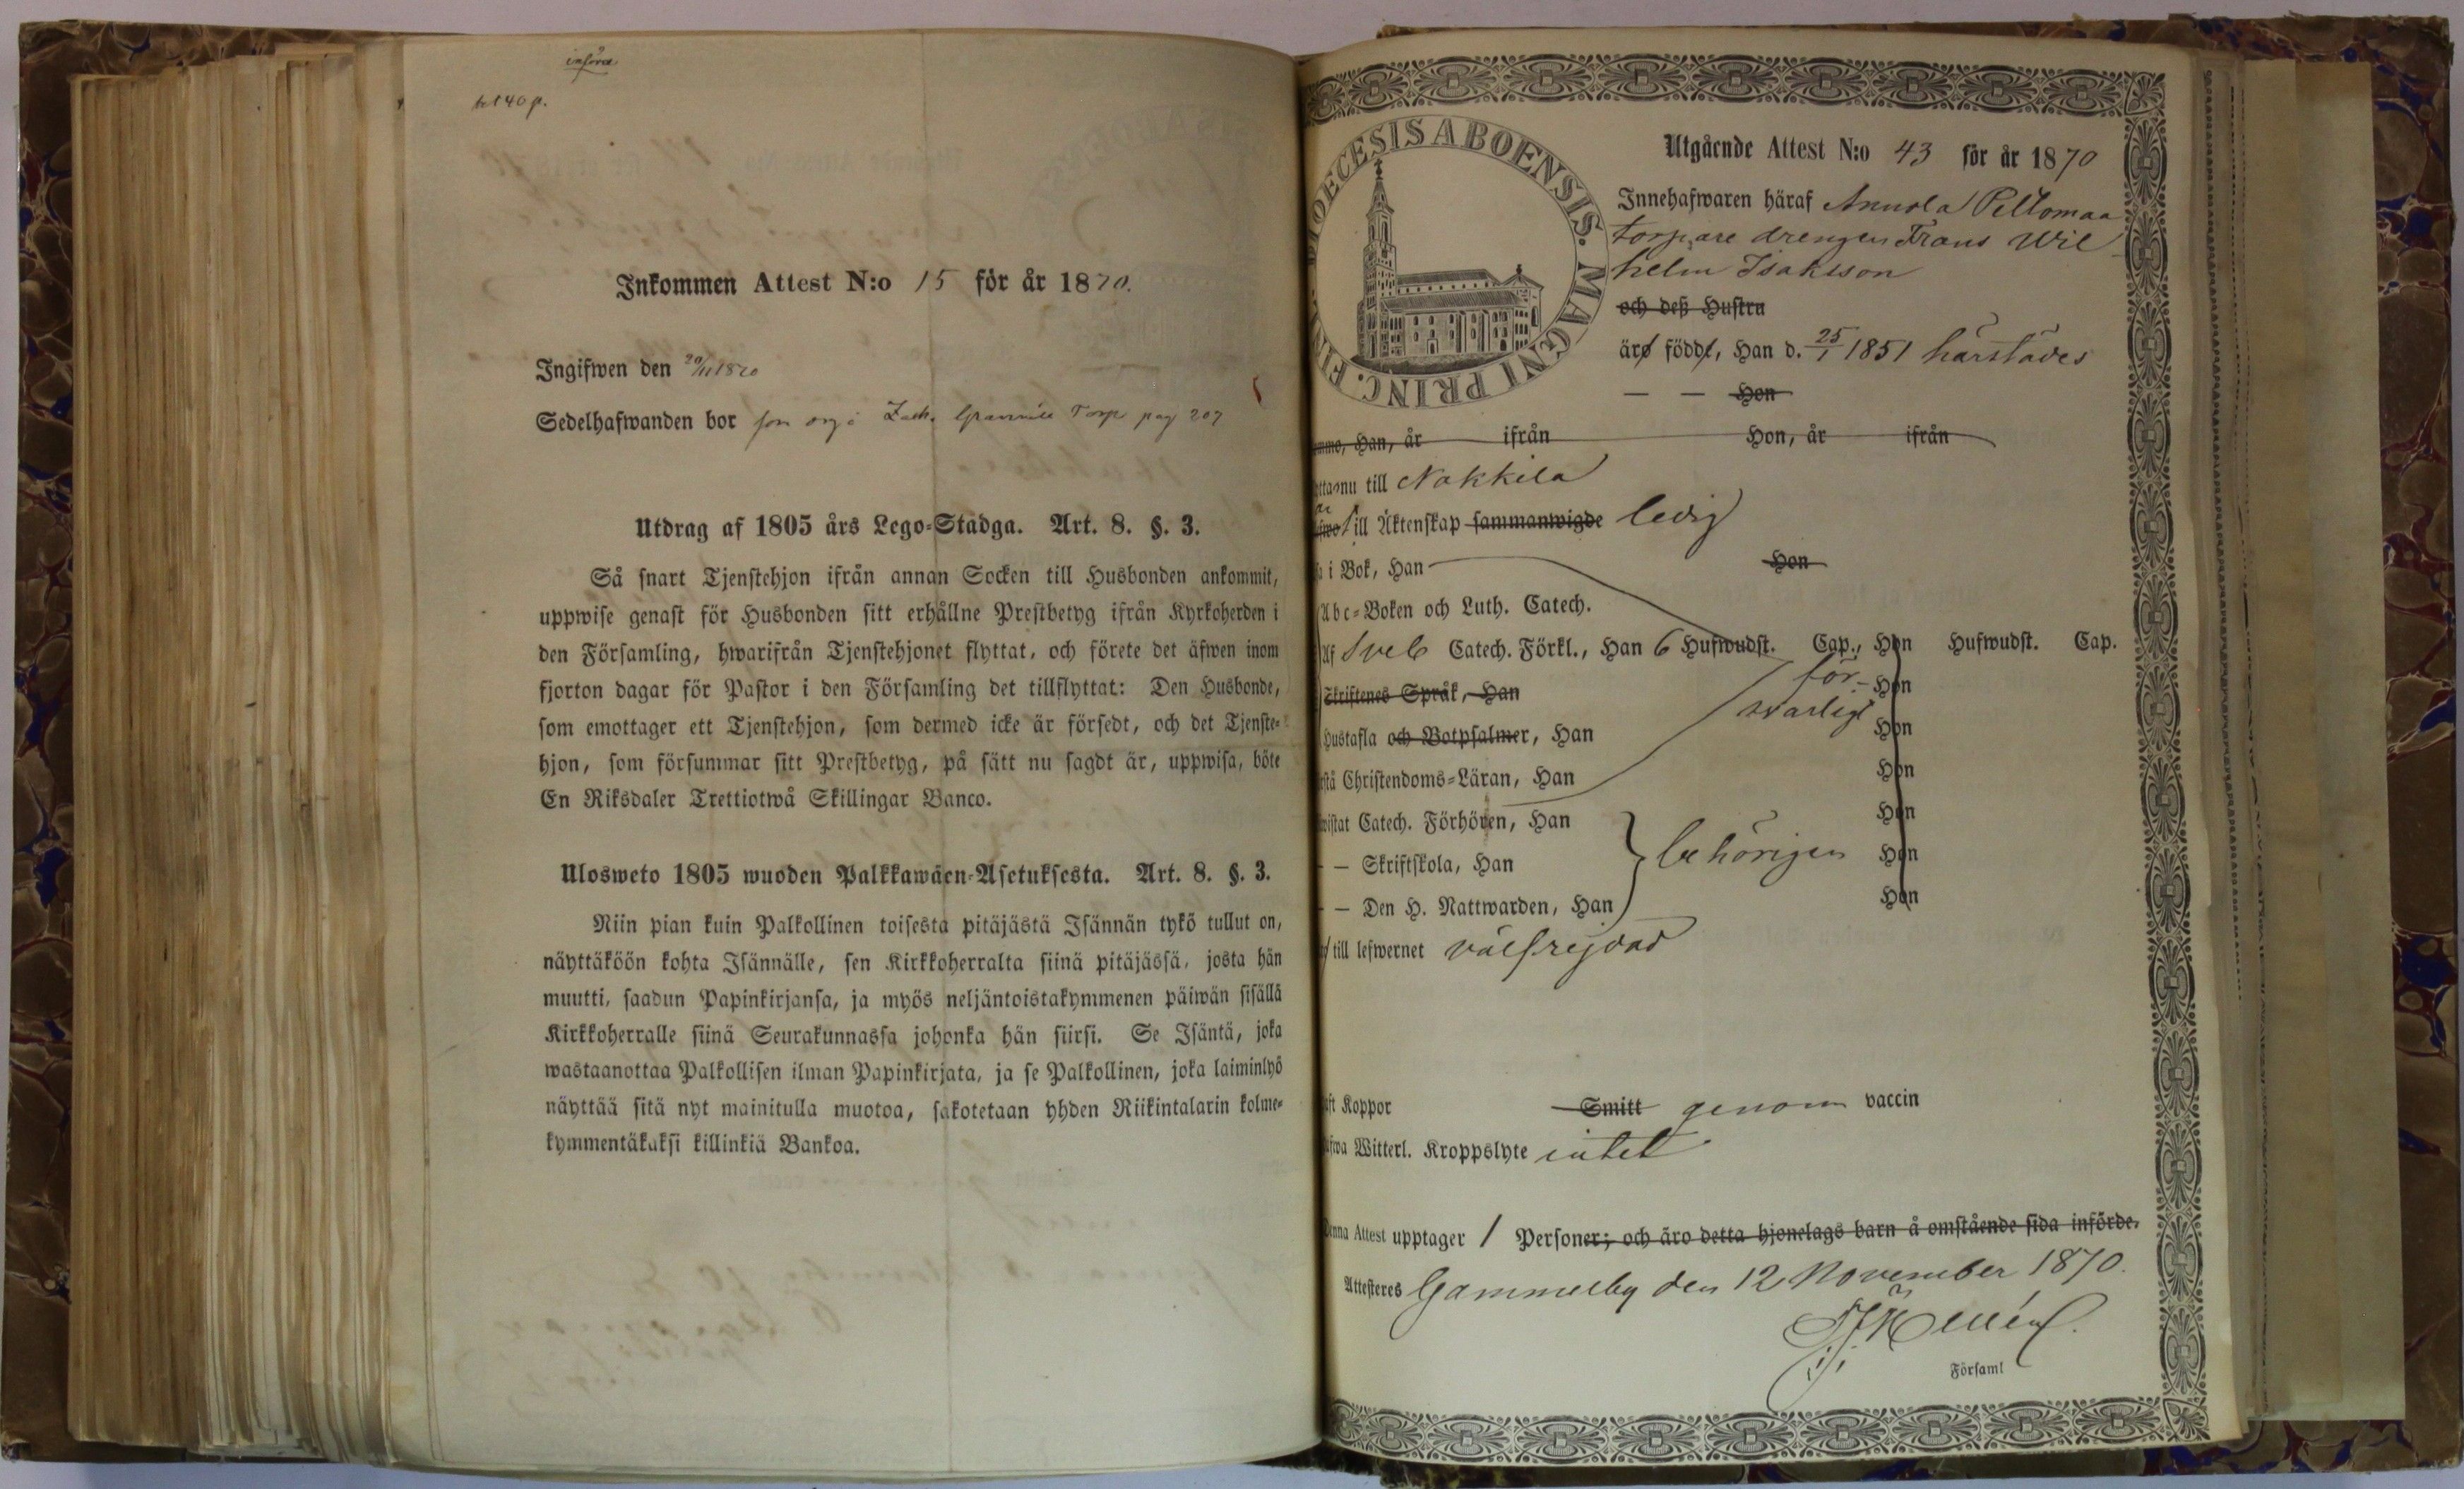 införd
bet 40 p.
Inkommen Attest N:o 15 för år 1870.
Ingifwen den 20/11 1870
Sedelhafwanden bor Torp pag 207
Utdrag af 1805 års Lego-Stadga. Art. 8. §. 3.
Så snart Tjenstehjon ifrån annan Socken till Husbonden ankommit,
uppwise genast för Husbonden sitt erhållne Prestbetyg ifrån Kyrkoherden i
den Församling, hwarifrån Tjenstehjonet flyttat, och förete det äfwen inom
fjorton dagar för Pastor i den Församling det tillflyttat: Den Husbonde,
som emottager ett Tjenstehjon, som dermed icke är försedt, och det Tjenste-
hjon, som försummar sitt Prestbetyg, på sätt nu sagdt är, uppwisa, böte
En Riksdaler Trettiotwå Skillingar Banco.
Ulosweto 1805 wuoden Palkkawäen-Asetuksesta. Art. 8. §. 3.
Niin pian kuin Palkollinen toisesta pitäjästä Isännän tykö tullut on,
näyttäköön kohta Isännälle, sen Kirkkoherralta siinä pitäjässä, josta hän
muutti, saadun Papinkirjansa, ja myös neljäntoistakymmenen päiwän sisällä
Kirkkoherralle siinä Seurakunnassa johonka hän siirsi. Se Isäntä, joka
wastaanottaa Palkollisen ilman Papinkirjata, ja se Palkollinen, joka laiminlyö
näyttää sitä nyt mainitulla muotoa, sakotetaan yhden Riikintalarin kolme-
kymmentäkaksi killinkiä Bankoa.
DIOECESIS ABOENSIS. MAGNI PRINC. FINL.
Utgående Attest N:o 43 för år 1870
Innehafwaren häraf Anuola Peltomaa
torpare drengen Frans Wil
helm Isaksson
och deß Hustru
äro födde, Han d. 25/1 1851 härstädes
— — Hon
Han, år ifrån Hon, år ifrån
nu till Nakkila
är till Äktenskap sammanwigde ledig
i Bok, Han Hon
Abc-Boken och Luth. Catech.
Af Sveb Catech. Förkl., Han 6 Hufwudst. Cap., Hon Hufwudst. Cap.
Skriftenes Språk, Han för- Hon
svarligt
Hustafla och Botpsalmer, Han Hon
Christendoms-Läran, Han Hon
Catech. Förhören, Han Hon
— — Skriftskola, Han behörigen Hon
— — Den H. Nattwarden, Han Hon
till lefwernet välfrejdad
Koppor Smitt genom vaccin
Witterl. Kroppslyte intet
Denna Attest upptager 1 Personer; och äro detta hjonelags barn å omstående sida införde.
Attesteres Gammelby den 12 November 1870.
Församl